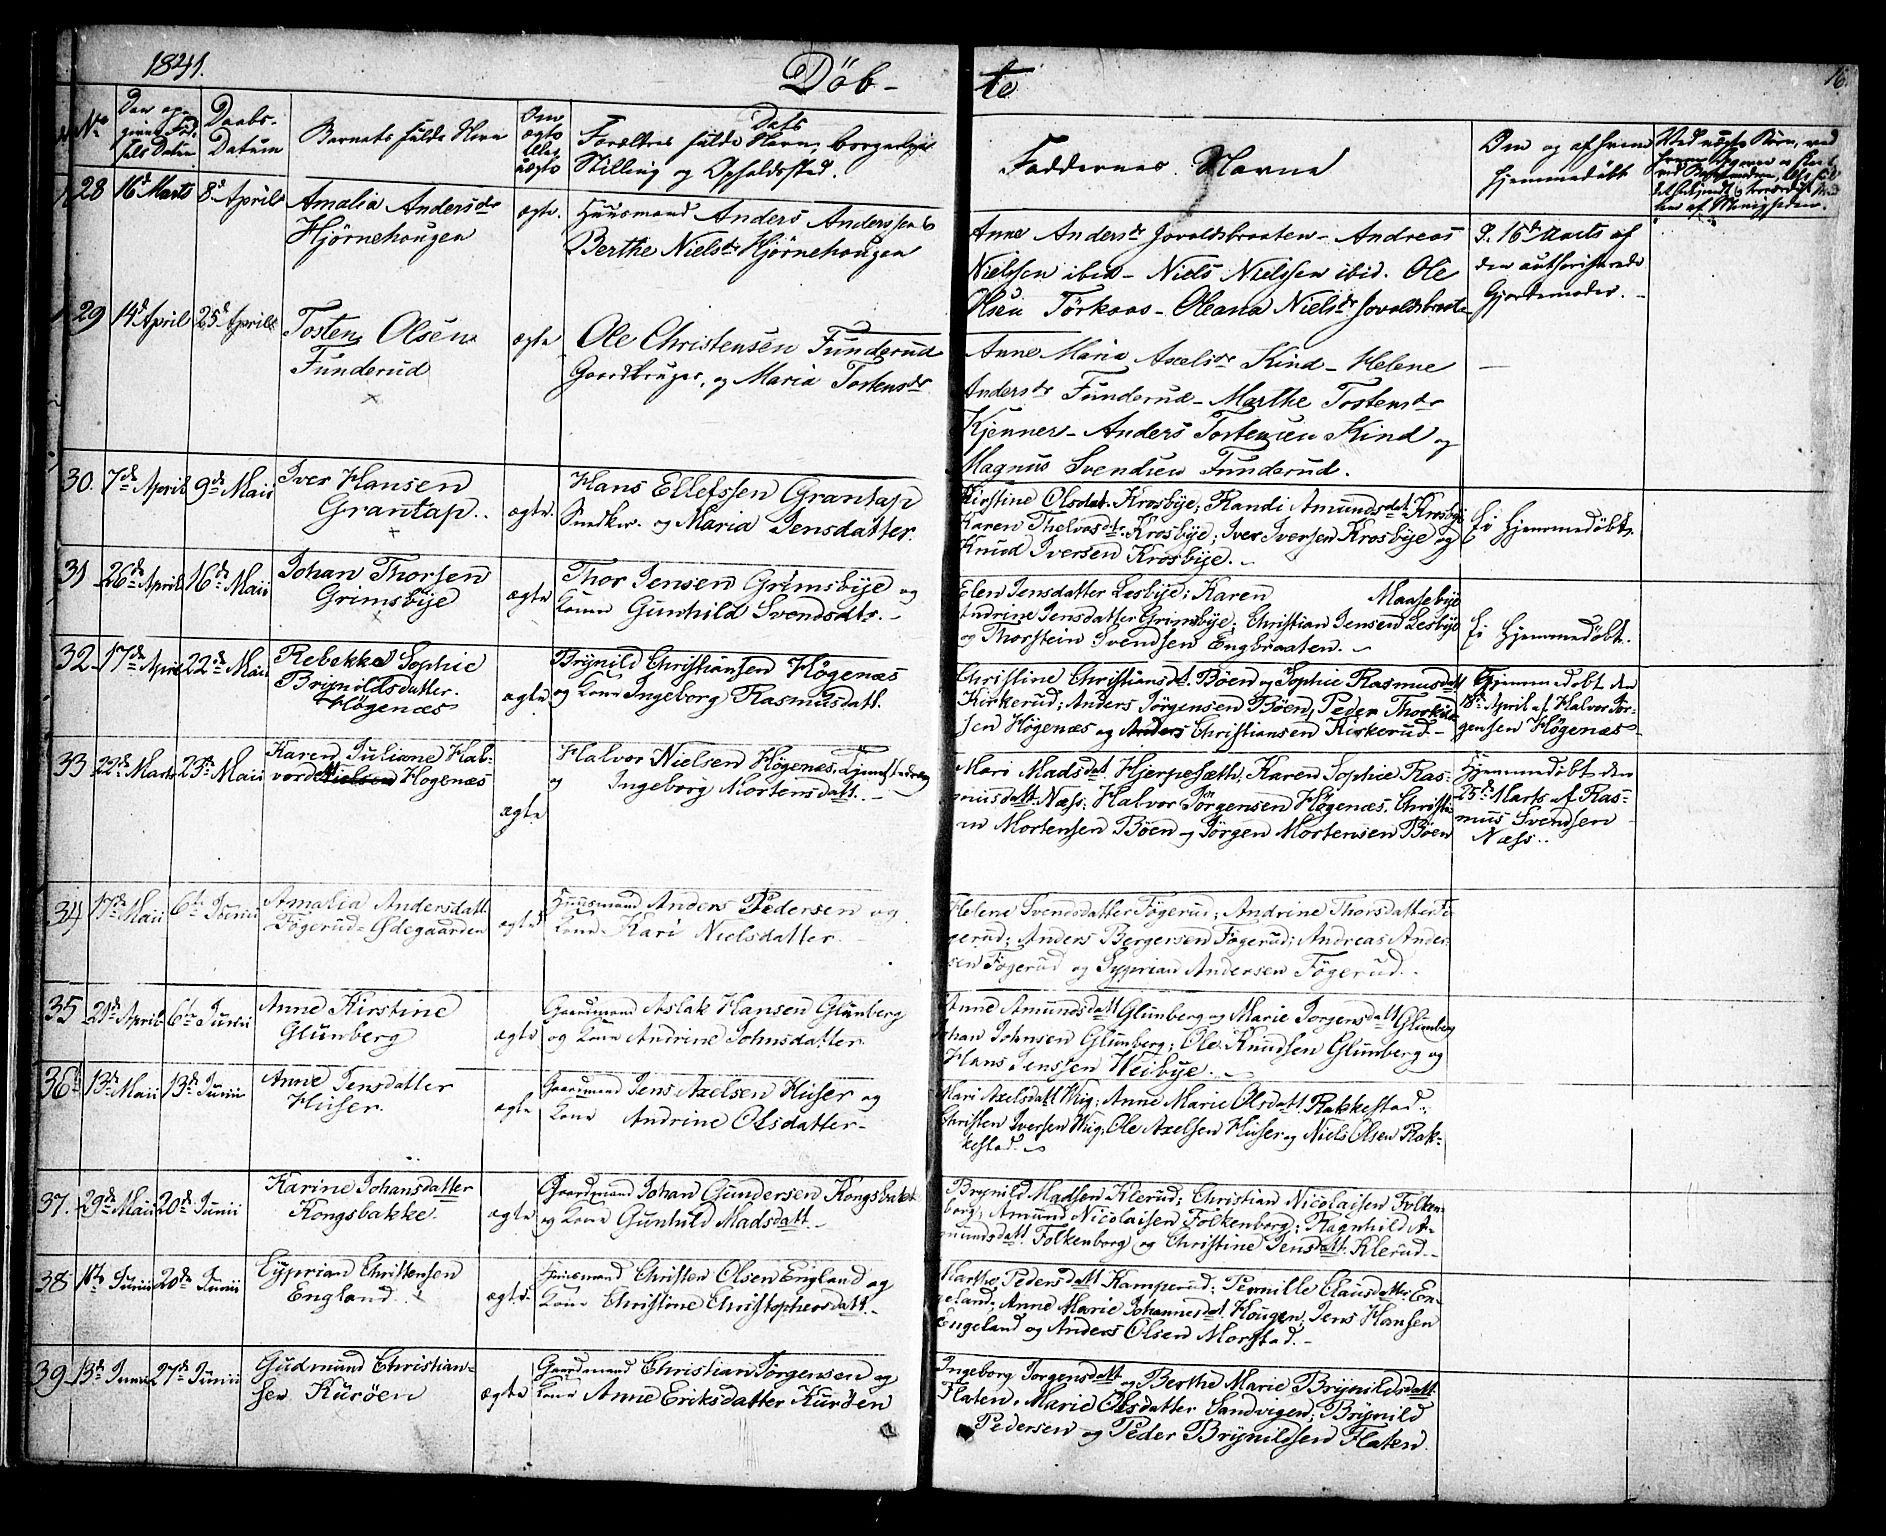 1841.
Döb-
te
16.
No
Den op-
givne Föd-
sels Datum
Daabs-
Datum
Barnets fulde Navn
Om
ægte
eller
uægte
Forældres fulde Navn, borgerlige
Stilling og Opholdssted.
Faddernes Navne
Om og af hvem
hjemmedøbt
28 16de Marts 8de April
Amalia Andersdr
Hjörnehougen
ægte.
Huusmand Anders Anderssen &
Berthe Nielsdr Hjörnehougen
Anne Andersdr Jovaldsbraaten - Andreas
Nielssen ibid - Niels Nielssen ibid. Ole
Olsen Törkaas - Oleana Nielsdr Jovaldsbraate
D. 16de Marts af
den authoriserede
Gjordemoder. -
29 14de April 25de April
Tosten Olsen
Funderud
ægte
Ole Christensen Funderud
Gaardbruger, og Maria Tostensdr
Anne Maria Axelsdr Kind - Helene
Andersdr Funderud - Marthe Tostensdr
Kjenner - Anders Tostensen Kind og
Magnus Svendsen Funderud.
30. 7de April 9de Maii
Iver Hansen
Grantap.
ægte.
Hans Ellefssen Grantap
Snedker. og Maria Jensdatter.
Kirstine Olsdat. Krosbÿe; Randi Amundsdatt. Krosbÿe
Karen Thelvasdtr. Krosbÿe; Iver Iversen Krosbÿe og
Knud Iversen Krosbÿe. -
Ei Hjemmedøbt.
31 26de April 16de Maii
Johan Thorsen
Grimsbÿe
ægte
Thor Jensen Grimsbÿe og
Kone Gunhild Svendsdtr. -
Elen Jensdatter Lesbÿe; Karen Maasebÿe
Andrine Jensdatter Grimsbÿe; Christian Jensen Lesbÿe
og Thorstein Svendsen Engbraaten. -
Ei Hjemmedøbt.
32 17de April 22de Maii
Rebekka Sophie
Brÿnildsdatter.
Högenæs
ægte
Brÿnild Christiansen Högenæs
og Kone Ingeborg Rasmusdatt.
Christine Christiansdt. Böen og Sophie Rasmusdatt
Kirkerud; Anders Jörgensen Böen; Peder Thorkild-
sen Högenæs og Anders Christiansen Kirkerud. -
Hjemmedøbt den
18de April af Halvor Jör-
gensen Högenæs -
33 22de Marts 23de Maii
Karen Juliane Hal-
vorsdt. Högenæs
ægte
Halvor Nielsen Högenæs, Tjenestedreng
og Ingeborg Mortensdatt. -
Mari Madsdat Hjerpesæth, Karen Sophie Ras-
musdatt. Næss; Halvor Jörgensen Högenæs. Christi-
an Mortensen Böen og Jörgen Mortensen Böen
Hjemmedøbt den
25de Marts af Ras-
mus Svendsen
Næss..
34 17de Maii 6te Junii
Amalia Andersdatt
Fögerud-Ødegaarden
ægte
Huusmand Anders Pedersen og
Kone Kari Nielsdatter. -
Helene Svendsdatter Fögerud; Andrine Thorsdatter Fö-
gerud; Anders Bergersen Fögerud; Andreas Ander-
sen Fögerud og Syprian Andersen Fögerud.
35 21de April 6te Junii
Anne Kirstine
Glünberg
ægte
Gaardmand Aslak Hansen Glünberg
og Kone Andrine Johnsdatter
Anne Amundsdatt Glünberg og Marie Jorgensdatt Glünberg
Johan Johnsen Glünberg; Ole Knudsen Glünberg og
Hans Jenssen Heibÿe. -
36 13de Maii 13de Junii
Anne Jensdatter
Huser.
ægte
Gaardmand Jens Axelsen Huser og
Kone Andrine Olsdatter -
Mari Axelsdatt Wiig; Anne Marie Olsdatt. Rakkestad.
Christen Iversen Wiig; Ole Axelsen Huser og Niels Olsen Rak-
kestad. -
37. 29de Maii 20de Junii
Karine Johansdatter
Kongsbakke.
ægte
Gaardmand Johan Gundersen Kongsbakke
og Kone Gunhild Madsdatt. -
Brÿnild Madsen Klerud; Christian Nicolaisen Folken-
borg; Amund Nicolaisen Folkenborg; Ragnhild A-
mundsdatt. Folkenborg og Christine Jensdatt. Klerud. -
38 1ste Junii 20de Junii
Cyprian Christensen
England.
ægte.
Huusmand Christen Olsen England og
Kone Christine Christophersdatt. -
Marthe Pedersdatt Kamperud; Pernille Clausdatter En-
geland; Anne Marie Johannesdat. Hougen, Jens Hansen
Engeland og Anders Olsen Morstad. -
39 13de Junii 27de Junii
Gudmund Christian-
sen Kuröen
ægte
Gaardmand Christian Jörgensen og
Kone Anne Eriksdatter Kuröen
Ingeborg Jorgensdatt og Berthe Marie Brÿnildsdatt.
Flaten, Marie Olsdatter Sandvigen; Brÿnild
Pedersen og Peder Brÿnildsen Flaten.